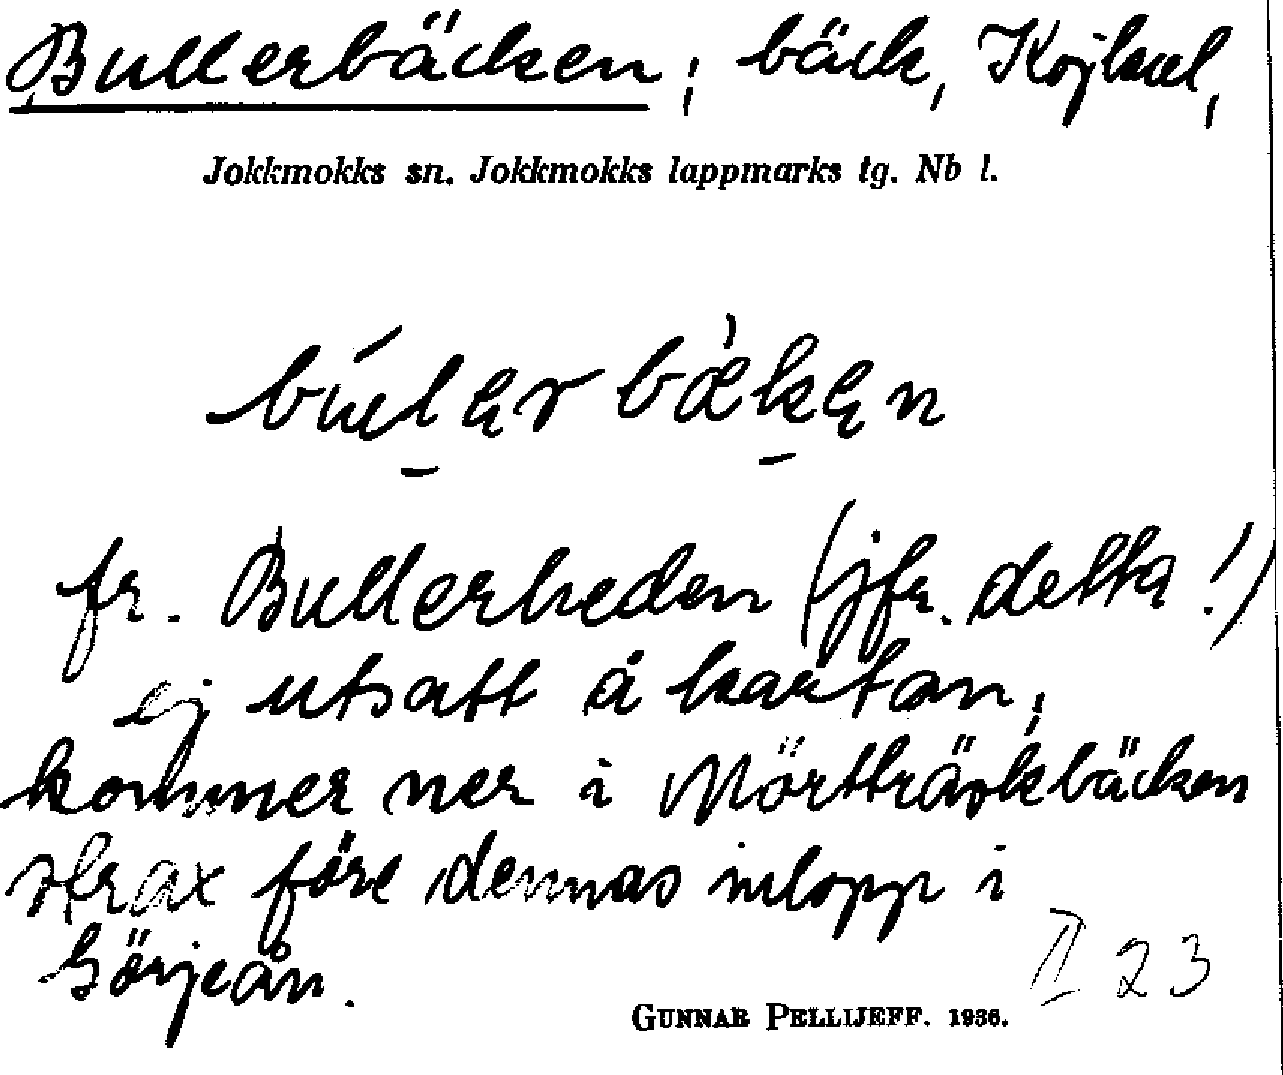 Bullerbäcken, bäck, Kojkul,
Jokkmokks sn. Jokkmokks lappmarks tg. Nb l.
fr. Bullerheden (jfr. detta!)
ej utsatt å kartan,
kommer ner i Mörtträskbäcken
strax före dennas inlopp i
Görjeån.
II 23
GUNNAR PELLIJEFF. 1936.